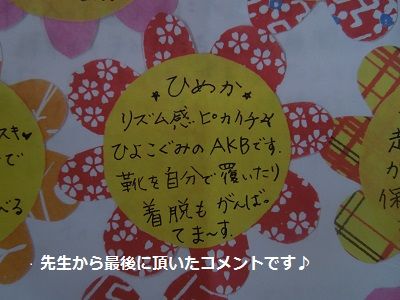 ひめか
リズム感ピカイチ
ひよこぐみのAKBです.
靴を自分で覆いたり
着脱もがんば。
てま〜す.
スキ♥
で
べる
走
が
保
先生から最後に頂いたコメントです♪